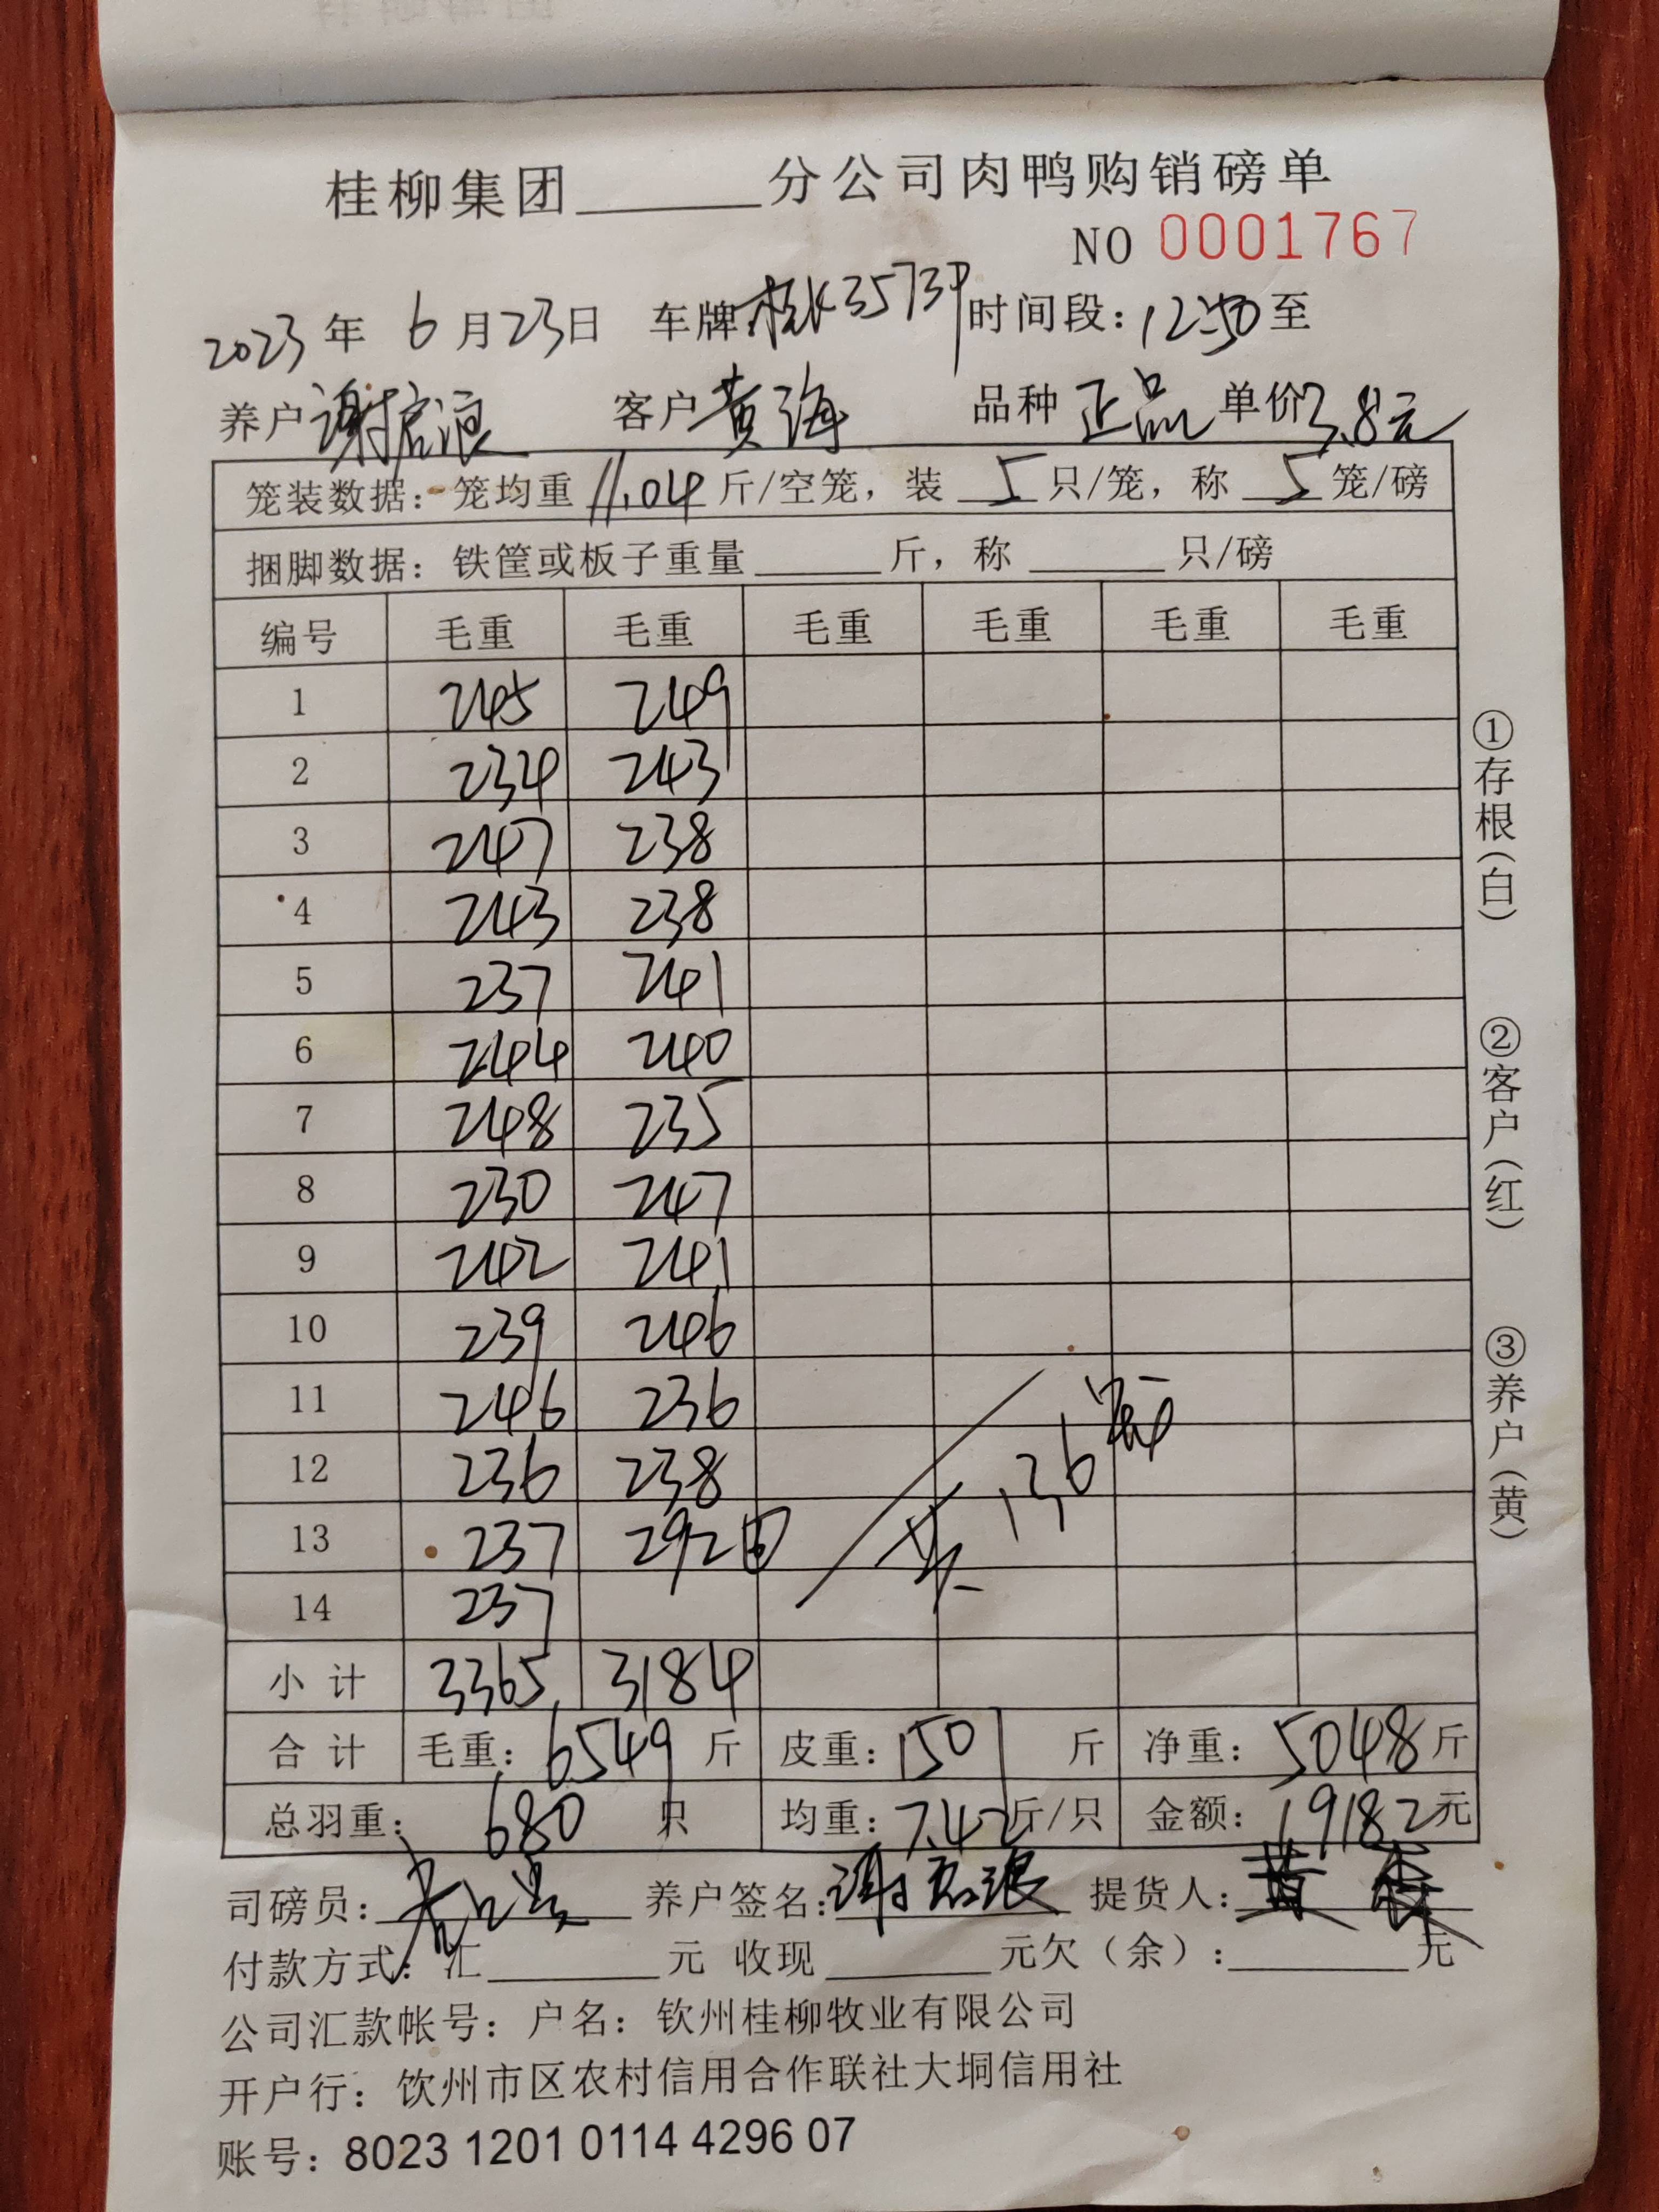 桂柳集团______分公司肉鸭购销磅单
NO 0001767
2023年 6月23日 车牌:桂K3573P 时间段:12:50至
养户 谢启浪 客户 黄海 品种 正品 单价 3.8元
笼装数据:笼均重 11.04 斤/空笼,装 5 只/笼,称 5 笼/磅
捆脚数据:铁筐或板子重量______斤,称______只/磅
编号 毛重 毛重 毛重 毛重 毛重 毛重
1 245 249
2 234 243
3 247 238
4 243 238
5 237 241
6 244 240
7 248 235
8 230 247
9 242 241
10 239 246
11 246 236
12 236 238
13 237 292⑥
14 237
共136笼
小计 3365 3184
合计 毛重:6549斤 皮重:1501斤 净重:5048斤
总羽重:680只 均重:7.42斤/只 金额:19182元
司磅员: 养户签名:谢启浪 提货人:黄
付款方式:汇______元 收现______元欠(余):______元
公司汇款帐号:户名:钦州桂柳牧业有限公司
开户行:钦州市区农村信用合作联社大垌信用社
账号:8023 1201 0114 4296 07
①存根(白) ②客户(红) ③养户(黄)